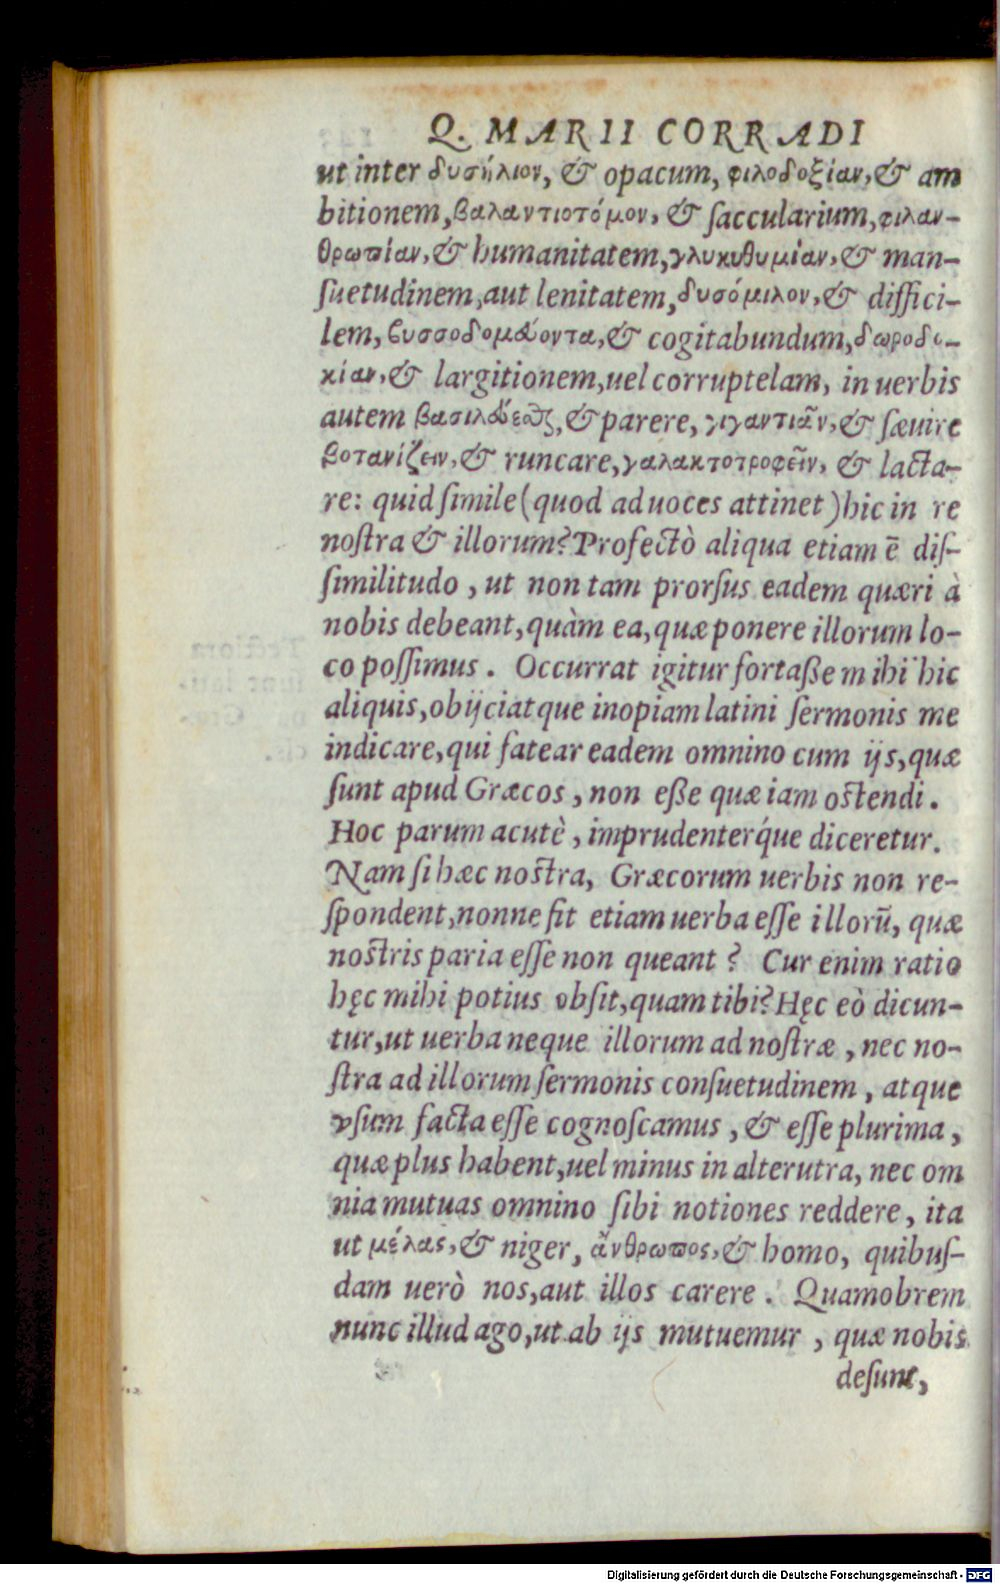 Q. MARII CORRADI
ut inter δυσήλιον, & opacum, φιλοδοξίαν, & am
bitionem, βαλαντιοτόμον, & ſaccularium, φιλαν-
θρωπίαν, & humanitatem, γλυκυθυμίαν, & man-
ſuetudinem, aut lenitatem, δυσόμιλον, & diffici-
lem, βυσσοδομεύοντα, & cogitabundum, δωροδο-
κίαν, & largitionem, uel corruptelam, in uerbis
autem βασιλεύεσθαι, & parere, γιγαντιᾶν, & ſæuire
βοτανίζειν, & runcare, γαλακτοτροφεῖν, & lacta-
re: quid ſimile (quod ad uoces attinet) hic in re
noſtra & illorum? Profectò aliqua etiam ē diſ-
ſimilitudo, ut non tam prorſus eadem quæri à
nobis debeant, quàm ea, quæ ponere illorum lo-
co poſſimus. Occurrat igitur fortaße mihi hic
aliquis, obijciatque inopiam latini ſermonis me
indicare, qui fatear eadem omnino cum ijs, quæ
ſunt apud Græcos, non eße quæ iam oſtendi.
Hoc parum acutè, imprudenterq́ue diceretur.
Nam ſi hæc noſtra, Græcorum uerbis non re-
ſpondent, nonne fit etiam uerba eſſe illorū, quæ
noſtris paria eſſe non queant? Cur enim ratio
hęc mihi potius obſit, quam tibi? Hęc eò dicun-
tur, ut uerba neque illorum ad noſtræ, nec no-
ſtra ad illorum ſermonis conſuetudinem, atque
vſum facta eſſe cognoſcamus, & eſſe plurima,
quæ plus habent, uel minus in alterutra, nec om
nia mutuas omnino ſibi notiones reddere, ita
ut μέλας, & niger, ἄνθρωπος, & homo, quibuſ-
dam uerò nos, aut illos carere. Quamobrem
nunc illud ago, ut ab ijs mutuemur, quæ nobis
deſunt,
Digitalisierung gefördert durch die Deutsche Forschungsgemeinschaft - DFG